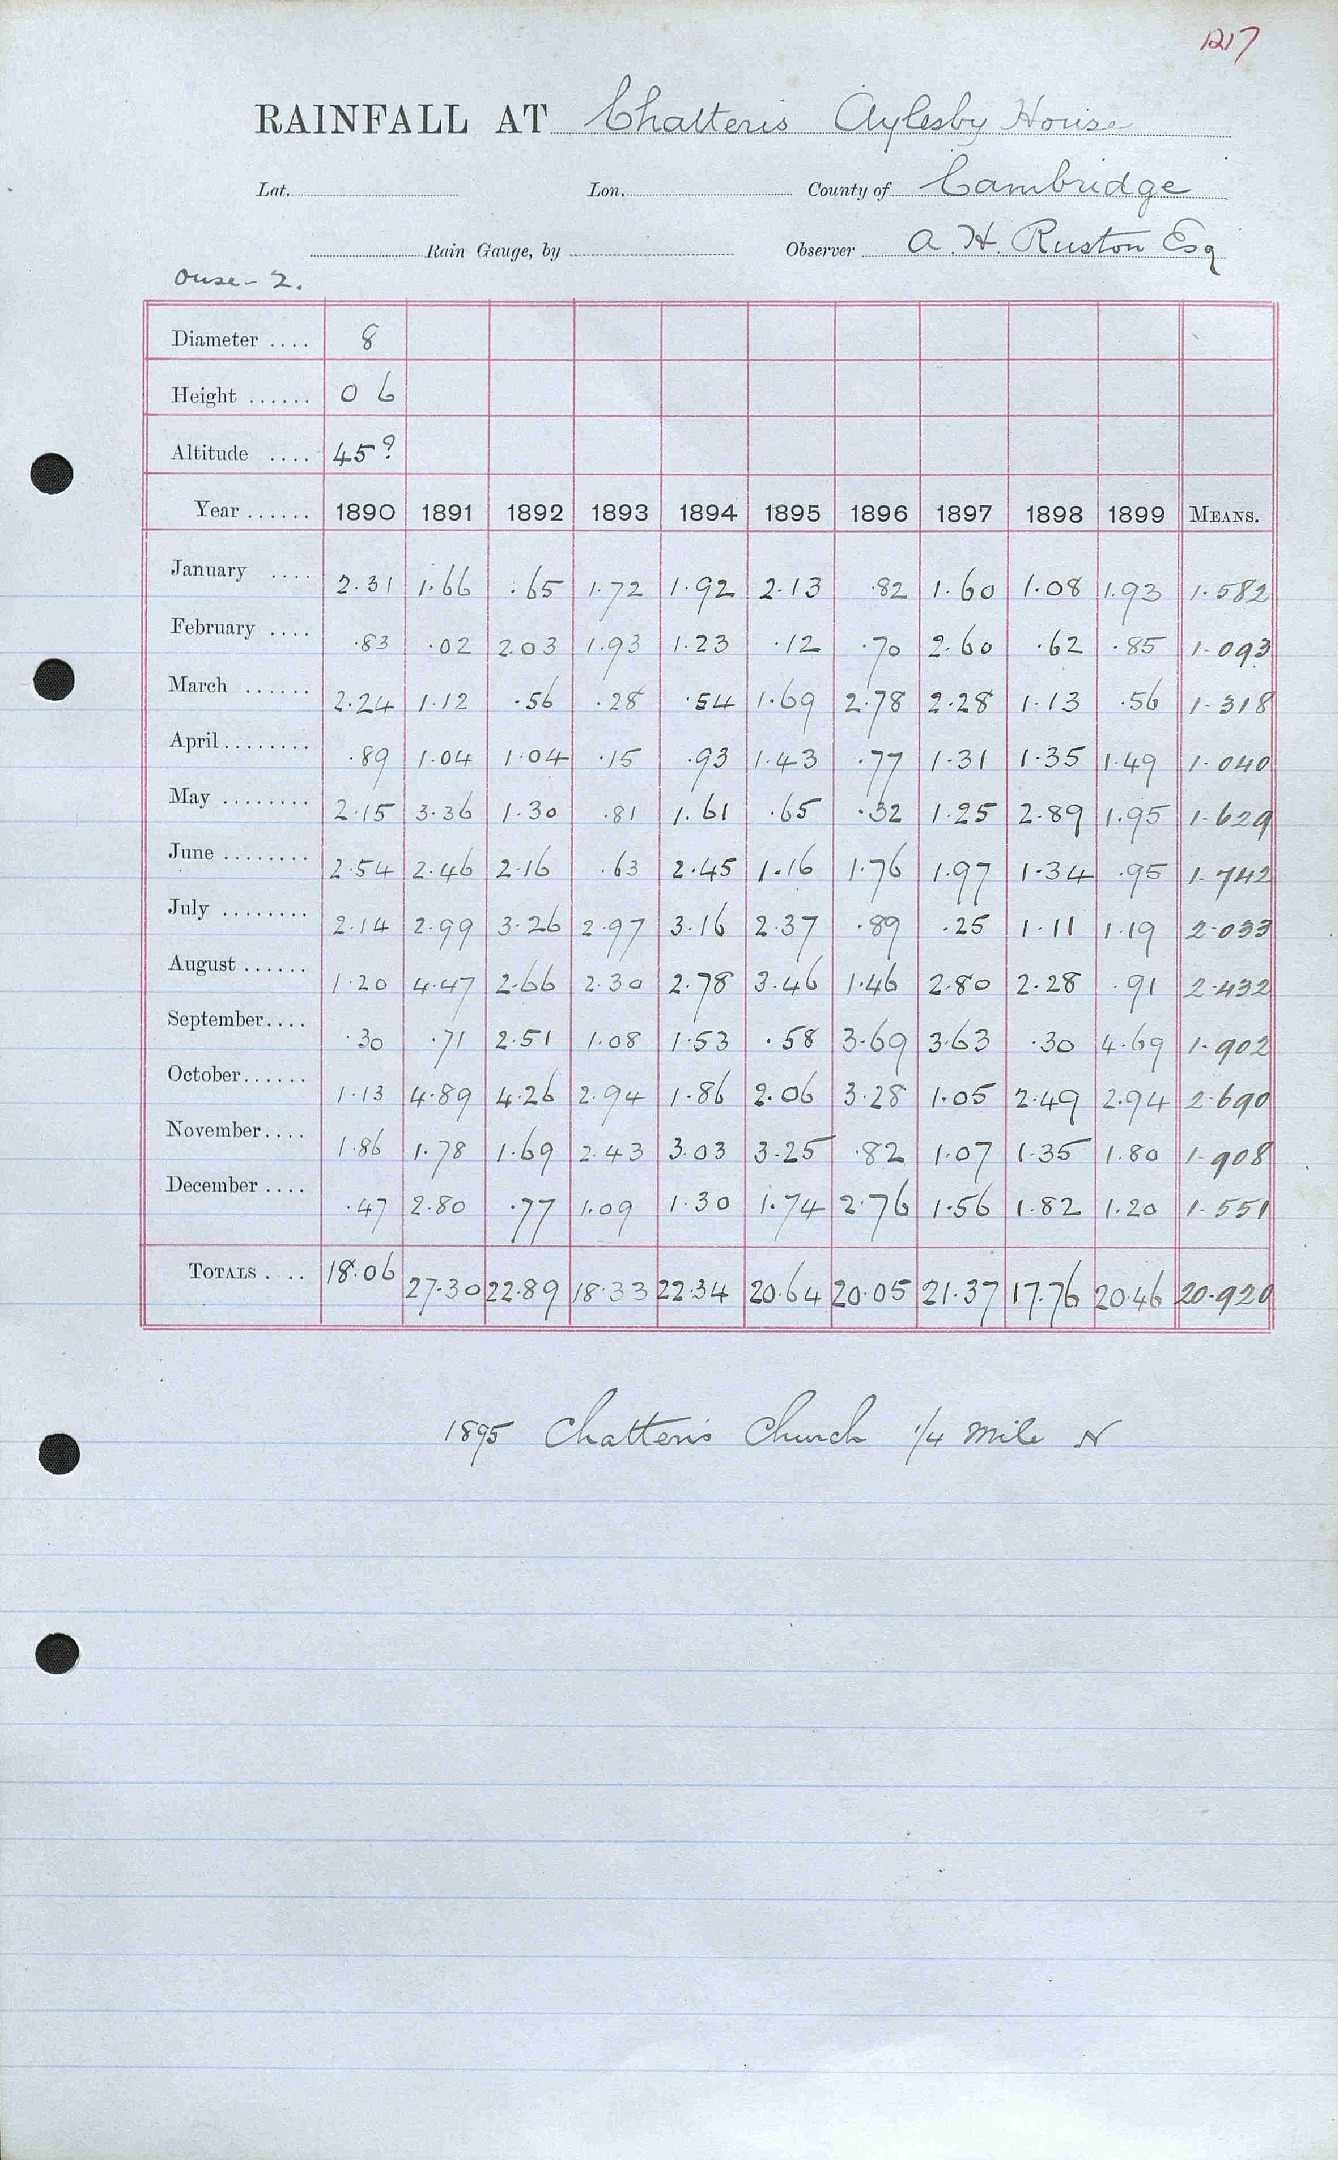 1217
RAINFALL AT Chatteris Aylesby House
Lat. Lon. County of Cambridge
Rain Gauge, by Observer A. H. Ruston Esq
Ouse - 2.
Diameter .... 8
Height ...... 0 6
Altitude .... 45?
Year ...... 1890 1891 1892 1893 1894 1895 1896 1897 1898 1899 MEANS.
January .... 2.31 1.66 .65 1.72 1.92 2.13 .82 1.60 1.08 1.93 1.582
February .... .83 .02 2.03 1.93 1.23 .12 .70 2.60 .62 .85 1.093
March ...... 2.24 1.12 .56 .28 .54 1.69 2.78 2.28 1.13 .56 1.318
April ........ .89 1.04 1.04 .15 .93 1.43 .77 1.31 1.35 1.49 1.040
May ........ 2.15 3.36 1.30 .81 1.61 .65 .32 1.25 2.89 1.95 1.629
June ........ 2.54 2.46 2.16 .63 2.45 1.16 1.76 1.97 1.34 .95 1.742
July ........ 2.14 2.99 3.26 2.97 3.16 2.37 .89 .25 1.11 1.19 2.033
August ...... 1.20 4.47 2.66 2.30 2.78 3.46 1.46 2.80 2.28 .91 2.432
September .... .30 .71 2.51 1.08 1.53 .58 3.69 3.63 .30 4.69 1.902
October ...... 1.13 4.89 4.26 2.94 1.86 2.06 3.28 1.05 2.49 2.94 2.690
November .... 1.86 1.78 1.69 2.43 3.03 3.25 .82 1.07 1.35 1.80 1.908
December .... .47 2.80 .77 1.09 1.30 1.74 2.76 1.56 1.82 1.20 1.551
TOTALS .... 18.06 27.30 22.89 18.33 22.34 20.64 20.05 21.37 17.76 20.46 20.920
1895 Chatteris Church 1/4 mile N